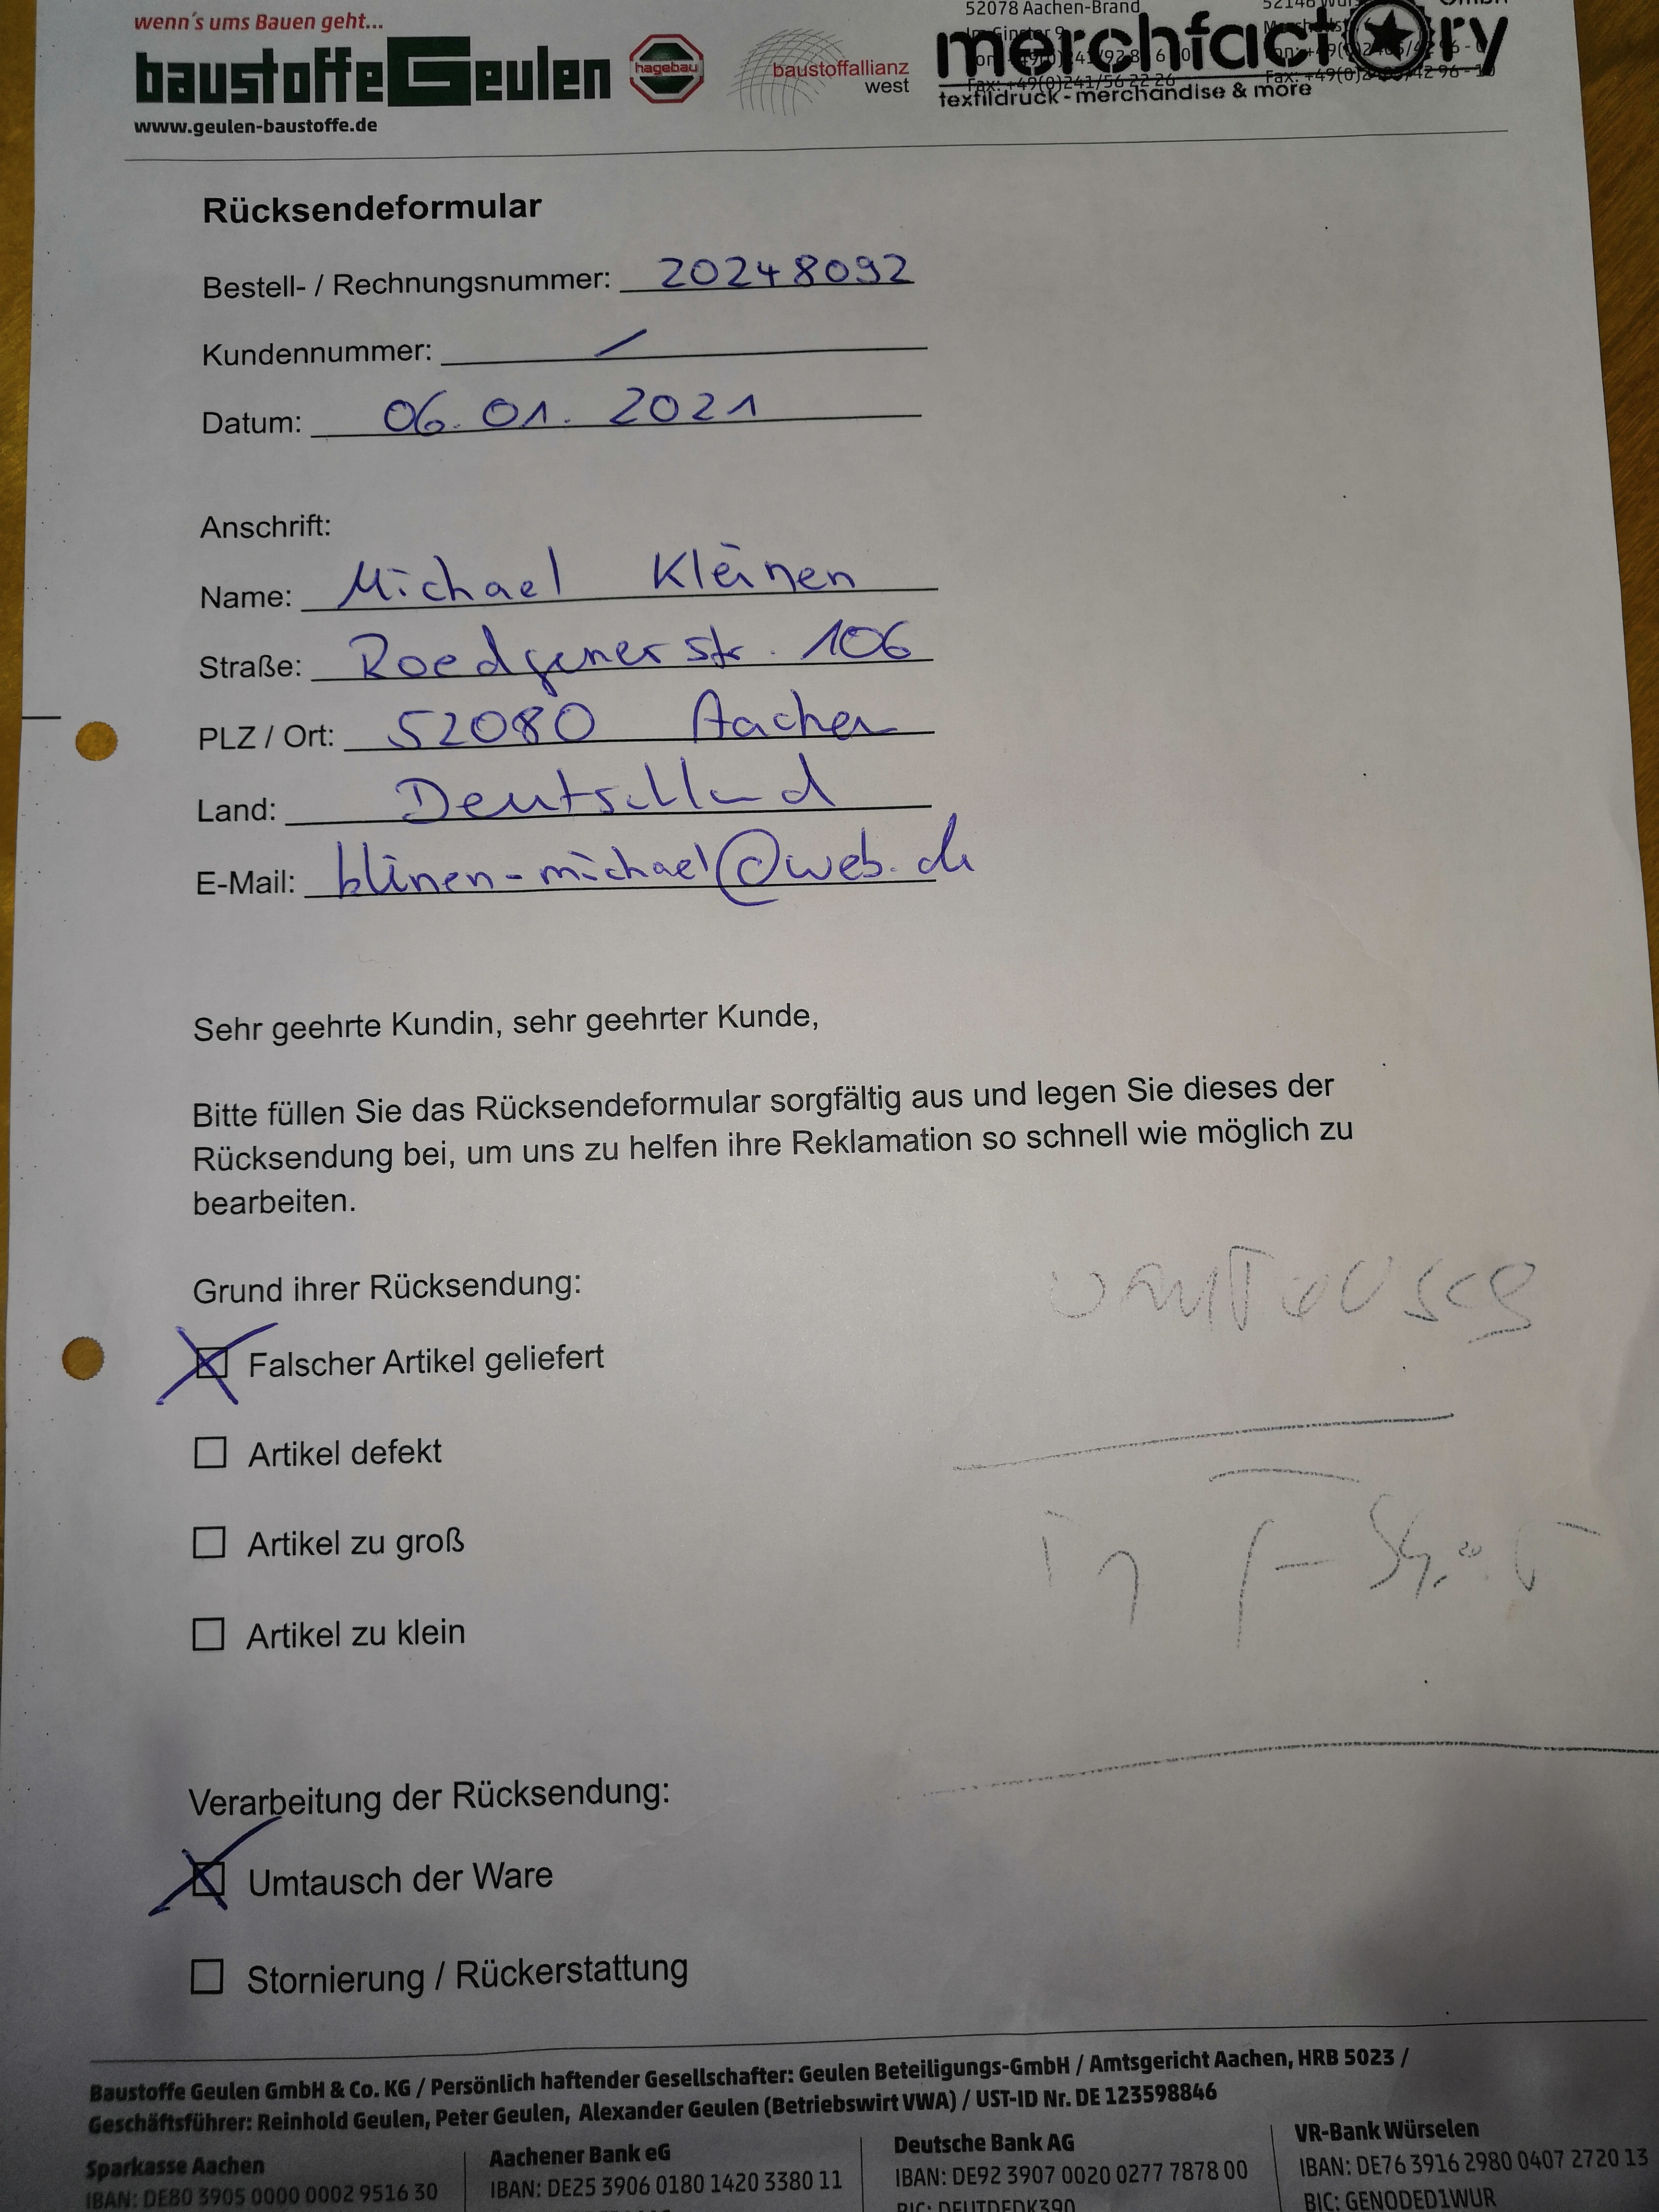 wenn's ums Bauen geht...
baustoffe Geulen
hagebau
baustoffallianz
west
www.geulen-baustoffe.de
52078 Aachen-Brand
merchfactory
textildruck - merchandise & more
Rücksendeformular
Bestell- / Rechnungsnummer: 20248092
Kundennummer: /
Datum: 06.01.2021
Anschrift:
Name: Michael Kleinen
Straße: Roedgener str. 106
PLZ / Ort: 52080 Aachen
Land: Deutschland
E-Mail: @web.de
Sehr geehrte Kundin, sehr geehrter Kunde,
Bitte füllen Sie das Rücksendeformular sorgfältig aus und legen Sie dieses der
Rücksendung bei, um uns zu helfen ihre Reklamation so schnell wie möglich zu
bearbeiten.
Grund ihrer Rücksendung:
Umtausch
Falscher Artikel geliefert
Artikel defekt
in
Artikel zu groß
Artikel zu klein
Verarbeitung der Rücksendung:
Umtausch der Ware
Stornierung / Rückerstattung
Baustoffe Geulen GmbH & Co. KG / Persönlich haftender Gesellschafter: Geulen Beteiligungs-GmbH / Amtsgericht Aachen, HRB 5023 /
Geschäftsführer: Reinhold Geulen, Peter Geulen, Alexander Geulen (Betriebswirt VWA) / UST-ID Nr. DE 123598846
Sparkasse Aachen
IBAN: DE80 3905 0000 0002 9516 30
Aachener Bank eG
IBAN: DE25 3906 0180 1420 3380 11
Deutsche Bank AG
IBAN: DE92 3907 0020 0277 7878 00
BIC: DEUTDEDK390
VR-Bank Würselen
IBAN: DE76 3916 2980 0407 2720 13
BIC: GENODED1WUR